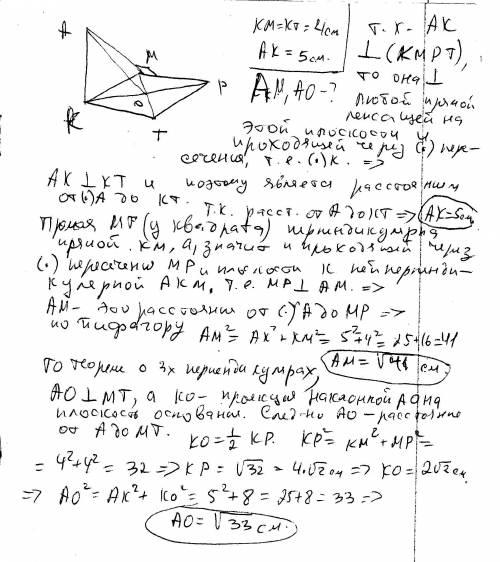 A
M
P
O
K
T
KM=KT=4см
AK=5см.
AM, AO-?
т.к. AK
⊥ (KMPT),
то она ⊥
любой прямой
лежащей на
этой плоскости и
проходящей через (.) пере-
сечения, т.е. (.) K. =>
AK ⊥ KT и поэтому является расстоянием
от (.) A до KT. т.к. расст. от A до KT => AK=5см
Прямая MT (у квадрата) перпендикулярна
прямой KM, а, значит и проходящий через
(.) пересечения MP и плоскости K ней перпенди-
кулярной AKM, т.е. MP ⊥ AM. =>
AM- это расстояния от (.) A до MP =>
по пифагору AM²= AK²+KM²= 5²+4²= 25+16=41
AM=√41 см.
По теореме о 3х перпендикулярах,
AO ⊥ MT, а KO- проекция наклонной A на
плоскость основания. След-но AO-расстояние
от A до MT. KO=½ KP. KP²= KM²+MP²=
= 4²+4² = 32 => KP = √32 = 4√2 см => KO= 2√2 см.
=> AO²= AK²+ KO²= 5²+8 = 25+8 = 33 =>
AO=√33 см.